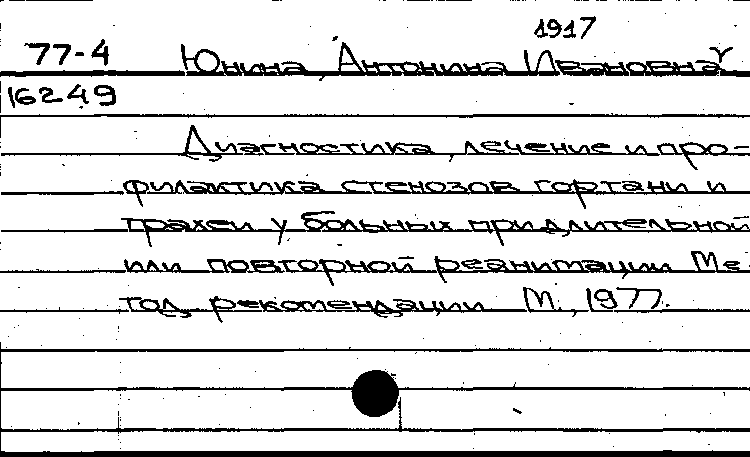 1917
77-4 Юнина, Антонина Ивановна
16249
Диагностика, лечение и про-
филактика стенозов гортани и
трахеи у больных при длительной
или повторной реанимации. Ме-
тод. рекомендации. М., 1977.